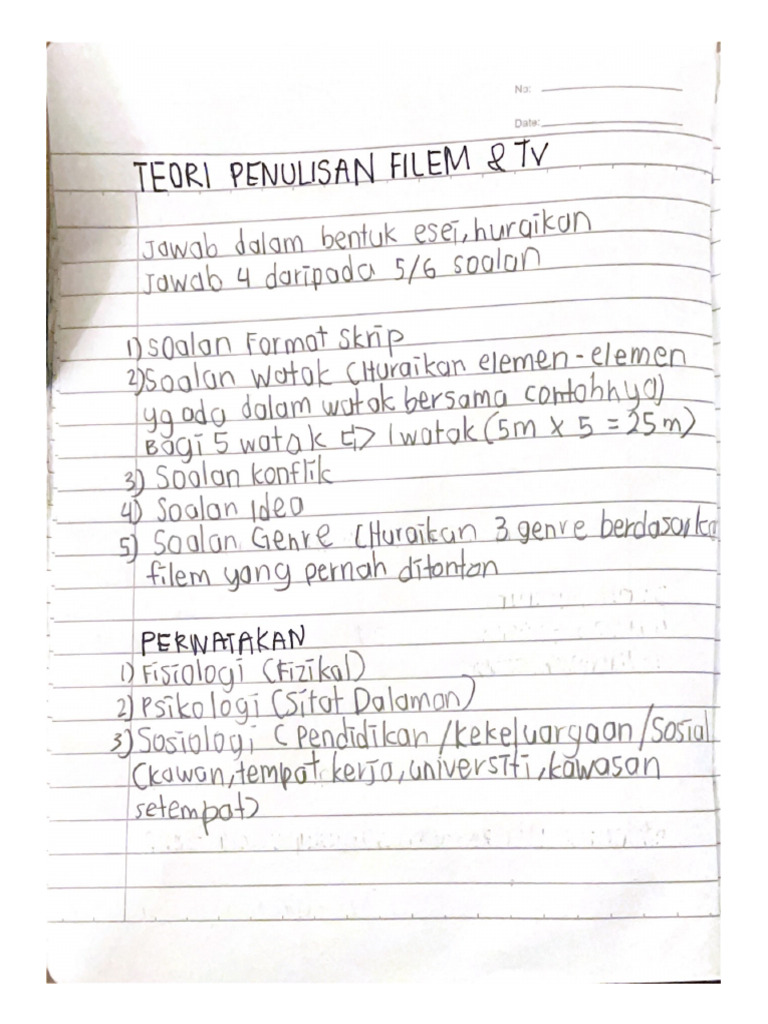 No:
Date:
TEORI PENULISAN FILEM & TV
Jawab dalam bentuk esei, huraikan
Jawab 4 daripada 5/6 soalan
1) Soalan Format Skrip
2) Soalan Watak (Huraikan elemen-elemen
yg ada dalam watak bersama contohnya)
Bagi 5 watak => 1 watak (5m x 5 = 25m)
3) Soalan konflik
4) Soalan Idea
5) Soalan Genre (Huraikan 3 genre berdasarka
filem yang pernah ditonton
PERWATAKAN
1) Fisiologi (Fizikal)
2) Psikologi (Sifat Dalaman)
3) Sosiologi ( Pendidikan /kekeluargaan /Sosial
(kawan, tempat kerja, universiti, kawasan
setempat)